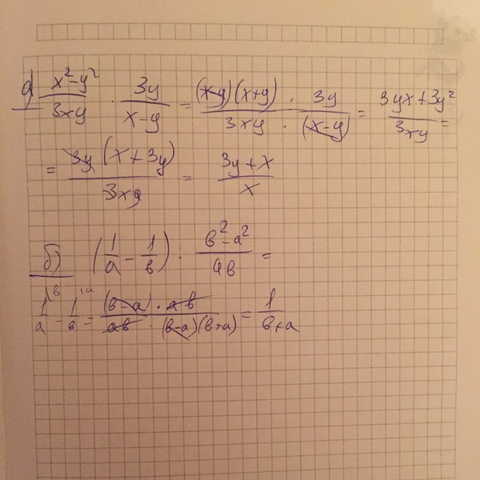 а) (x²-y²)/(3xy) · (3y)/(x-y) = ((x-y)(x+y) · 3y)/(3xy · (x-y)) = (3yx+3y²)/(3xy) =
= (3y(x+3y))/(3xy) = (3y+x)/x
б) (1/a - 1/в) : (в²-a²)/(aв) =
1/a^(\в) - 1/в^(\a) = ((в-a) · aв)/(aв · (в-a)(в+a)) = 1/(в+a)